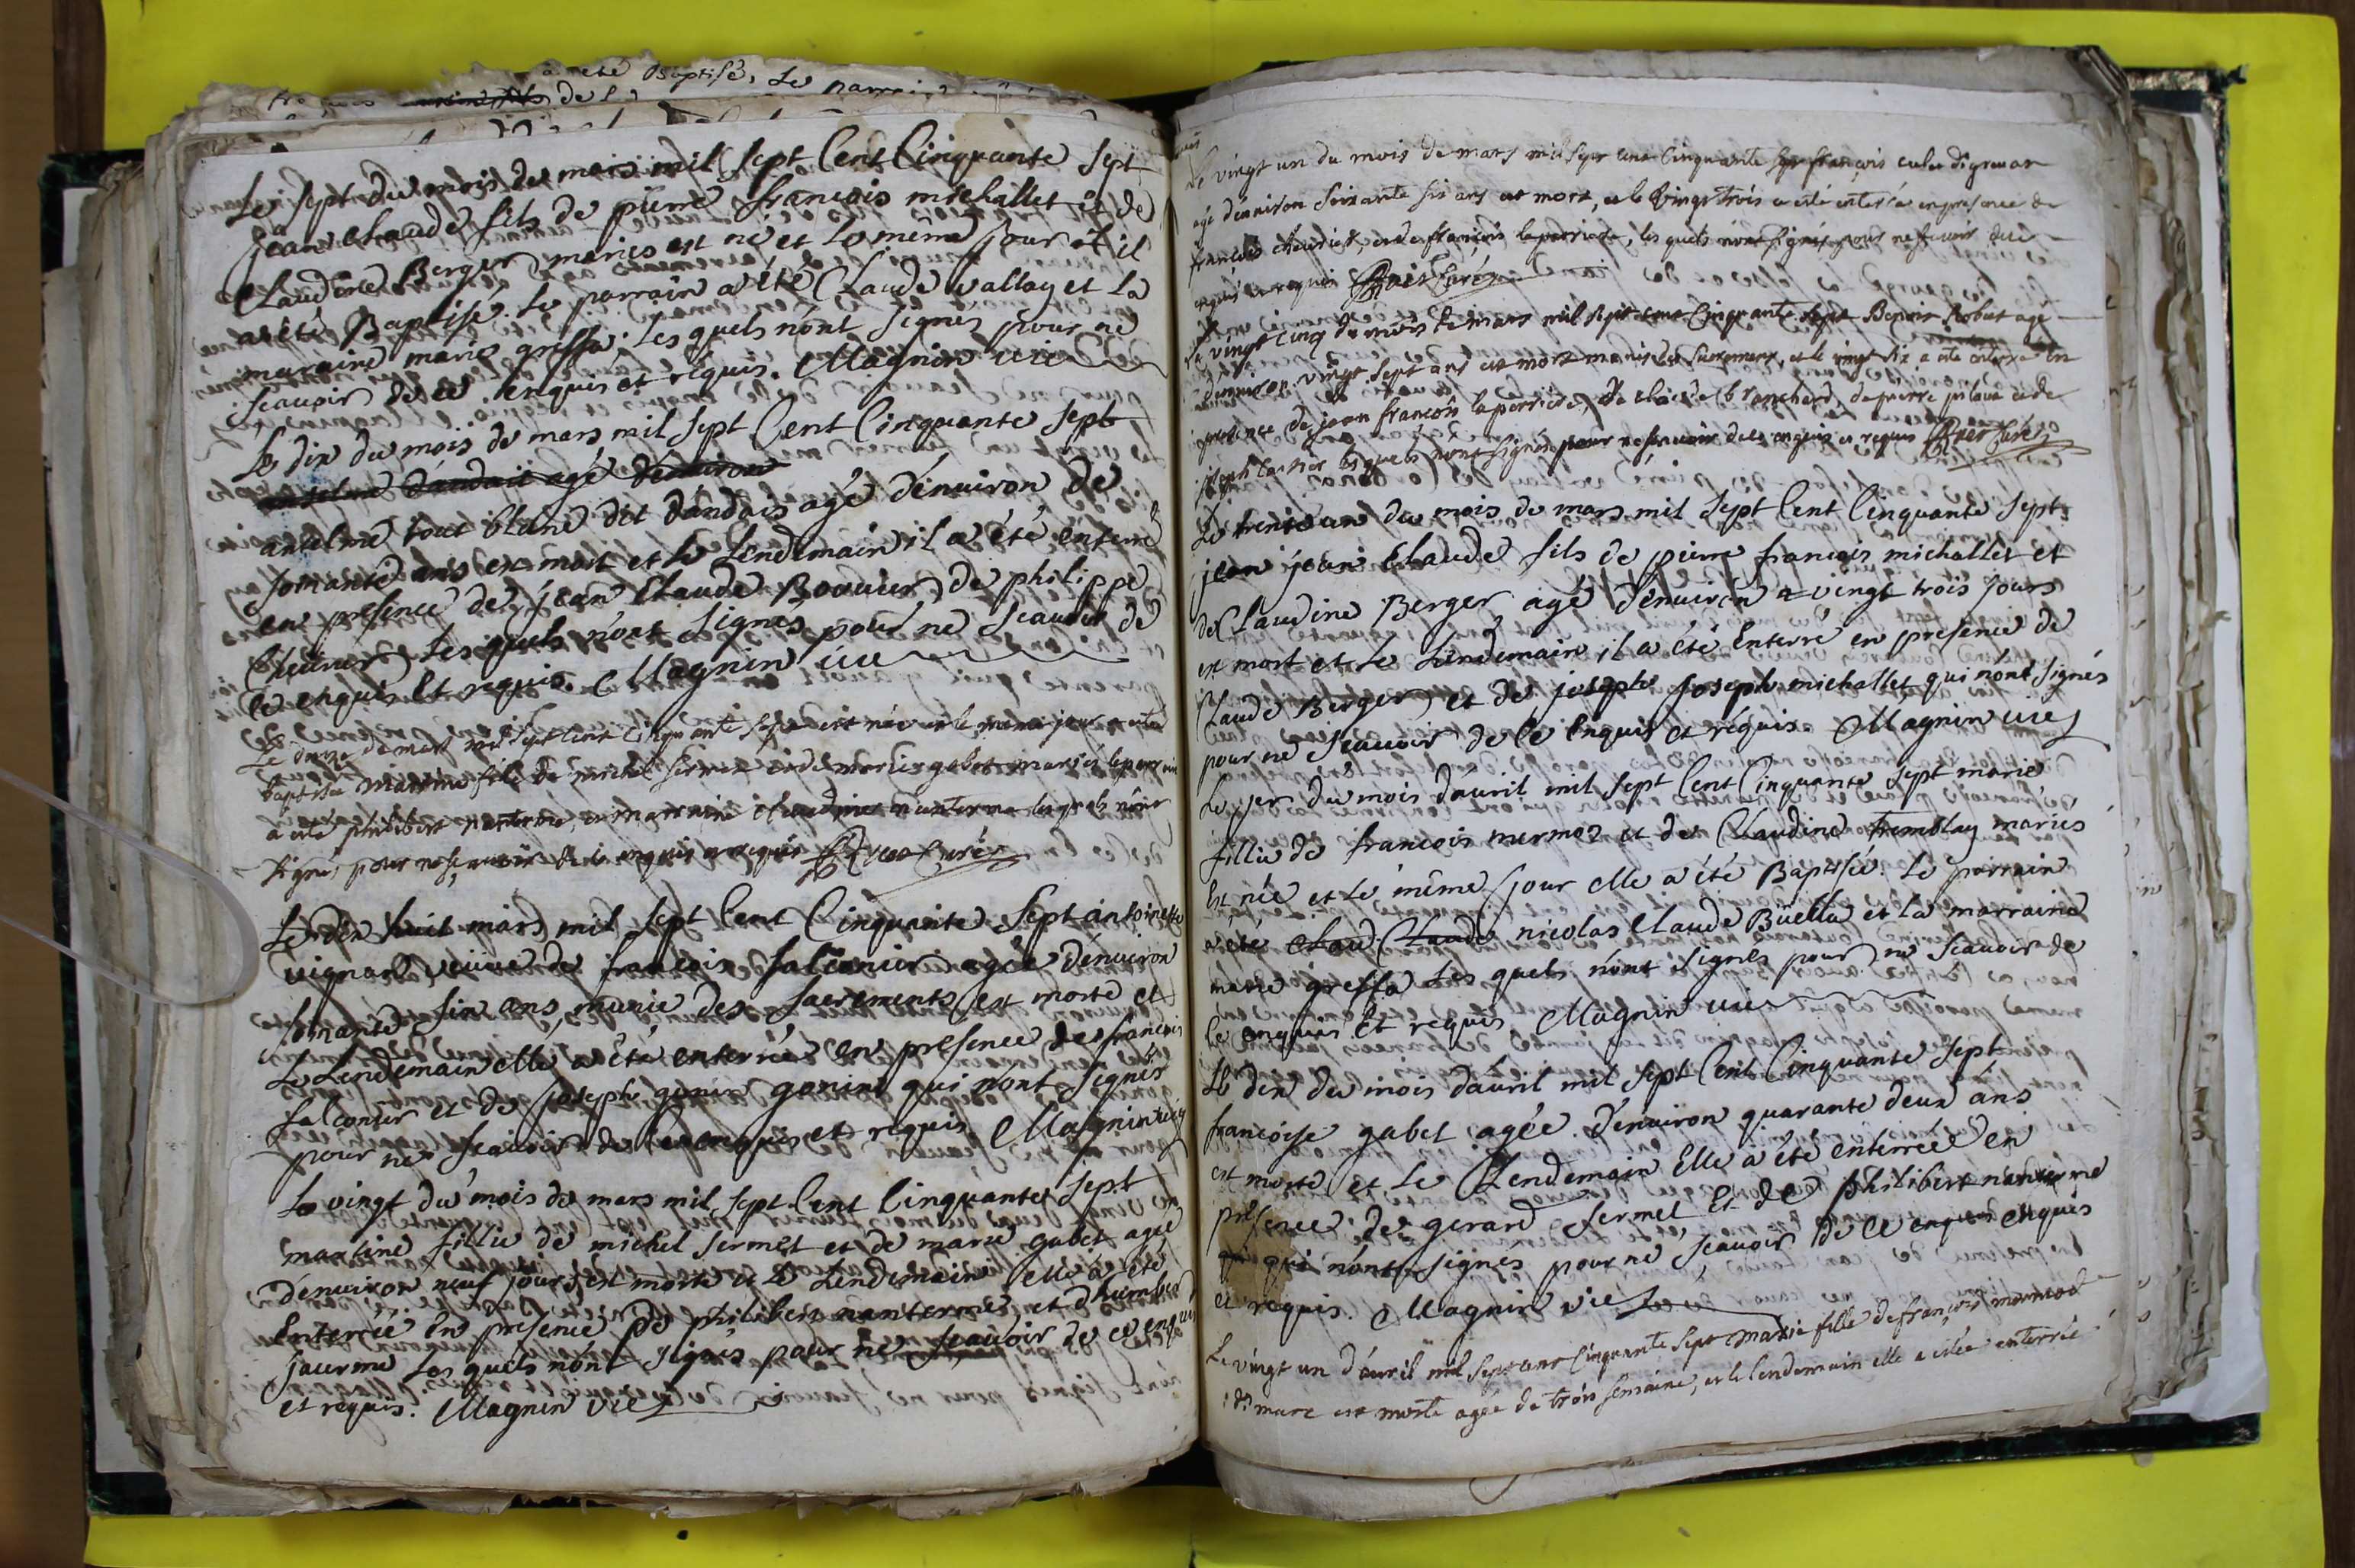 a été Baptisé, Le parrain
de
Le sept du mois de mars mil sept Cent Cinquante sept
jean claude fils de pierre francois michallet et de
Claudine Berger mariés est né et le même jour il
a été Baptisé. Le parrain a été Claude vallay et La
maraine marie greffa. Les quels n'ont signés pour ne
scauoir de ce enquis et réquis. Magnin vic
Le dix du mois de mars mil sept Cent Cinquante sept
anselme dandait agé d'enuiron
anselme tout blanc dit dandais agé d'énuiron de
soixante ans est mort et le Lendemain il a été énterré
en présence de jean Claude Bouuier, de philippe
Les quels n'ont signés pour ne scauoir de
ce enquis Et requis. Magnin vic
Le douze de mars mil sept Cent Cinquante sept est née et le même jour a été
baptisée martine fille de michel sermet et de marie gabet mariés le parrain
a été philibert nanterme, et marraine Claudine nanterme lesquels n'ont
signé, pour ne sçauoir de ce enquis et requis Curé
Le dix huit mars mil sept Cent Cinquante sept antoinette
vignard veuve de francois falconier agée d'énuiron
soixante six ans munie des sacrements est morte et
Le Lendemain elle a été enterrée en présence de francois
falconier et de joseph gonin gonin qui n'ont signés
pour ne scauoir de ce enquis et requis Magnin vic
Le vingt du mois de mars mil sept Cent Cinquante sept
martine fillie de michel sermet et de marie gabet agée
d'énuiron neuf jours est morte et le Lendemain elle a été
Enterrée En présence de philibert nanterme et d'humbert
jaurme Les quels n'ont signés pour ne scauoir de ce enquis
et requis. Magnin vic
Le vingt un du mois de mars mil sept cent Cinquante sept françois
agé d'enuiron soixante six ans est mort, et le vingt trois a été enterré en presence de
françois et de françois laperriere, les quels n'ont signés pour ne scauoir de ce
enquis et requis Curé
Le vingt cinq du mois de mars mil sept cent Cinquante sept Benoit Robert agé
d'enuiron vingt sept ans est mort muni des sacrements, et le vingt six a été enterré en
présence de jean françois laperriere, de claude blanchard, de pierre et de
joseph les quels n'ont signés pour ne sçauoir de ce enquis et requis Curé
Le trente un du mois de mars mil sept Cent Cinquante sept
jean jean Claude fils de pierre francois michallet et
de Claudine Berger agé d'énuiron vingt trois jours
est mort et Le Lendemain il a été Enterré en présence de
Claude Berger et de joseph joseph michallet qui n'ont signés
pour ne scauoir de Ce Enquis et réquis Magnin vic
Le 1er du mois d'auril mil sept Cent Cinquante sept marie
fillie de francois mermoz et de Claudine tremblay mariés
Est née et Le même jour elle a été Baptisée. Le parrain
a été Claud Claude nicolas Claude Büella et la marraine
marie greffa Les quels n'ont signés pour ne scauoir de
Ce enquis Et requis Magnin vic
Le dix du mois d'auril mil sept Cent Cinquante sept
francoise gabet agée d'énuiron quarante deux ans
est morte et Le Lendemain Elle a été enterrée en
présence de gerard sermet Et de philibert nanterme
qui n'ont signés pour ne scauoir de ce enquis enquis
et requis. Magnin vic
Le vingt un d'auril mil sept cent Cinquante sept marie fille de françois
est morte agée de trois semaine, et le lendemain elle a étée enterrée